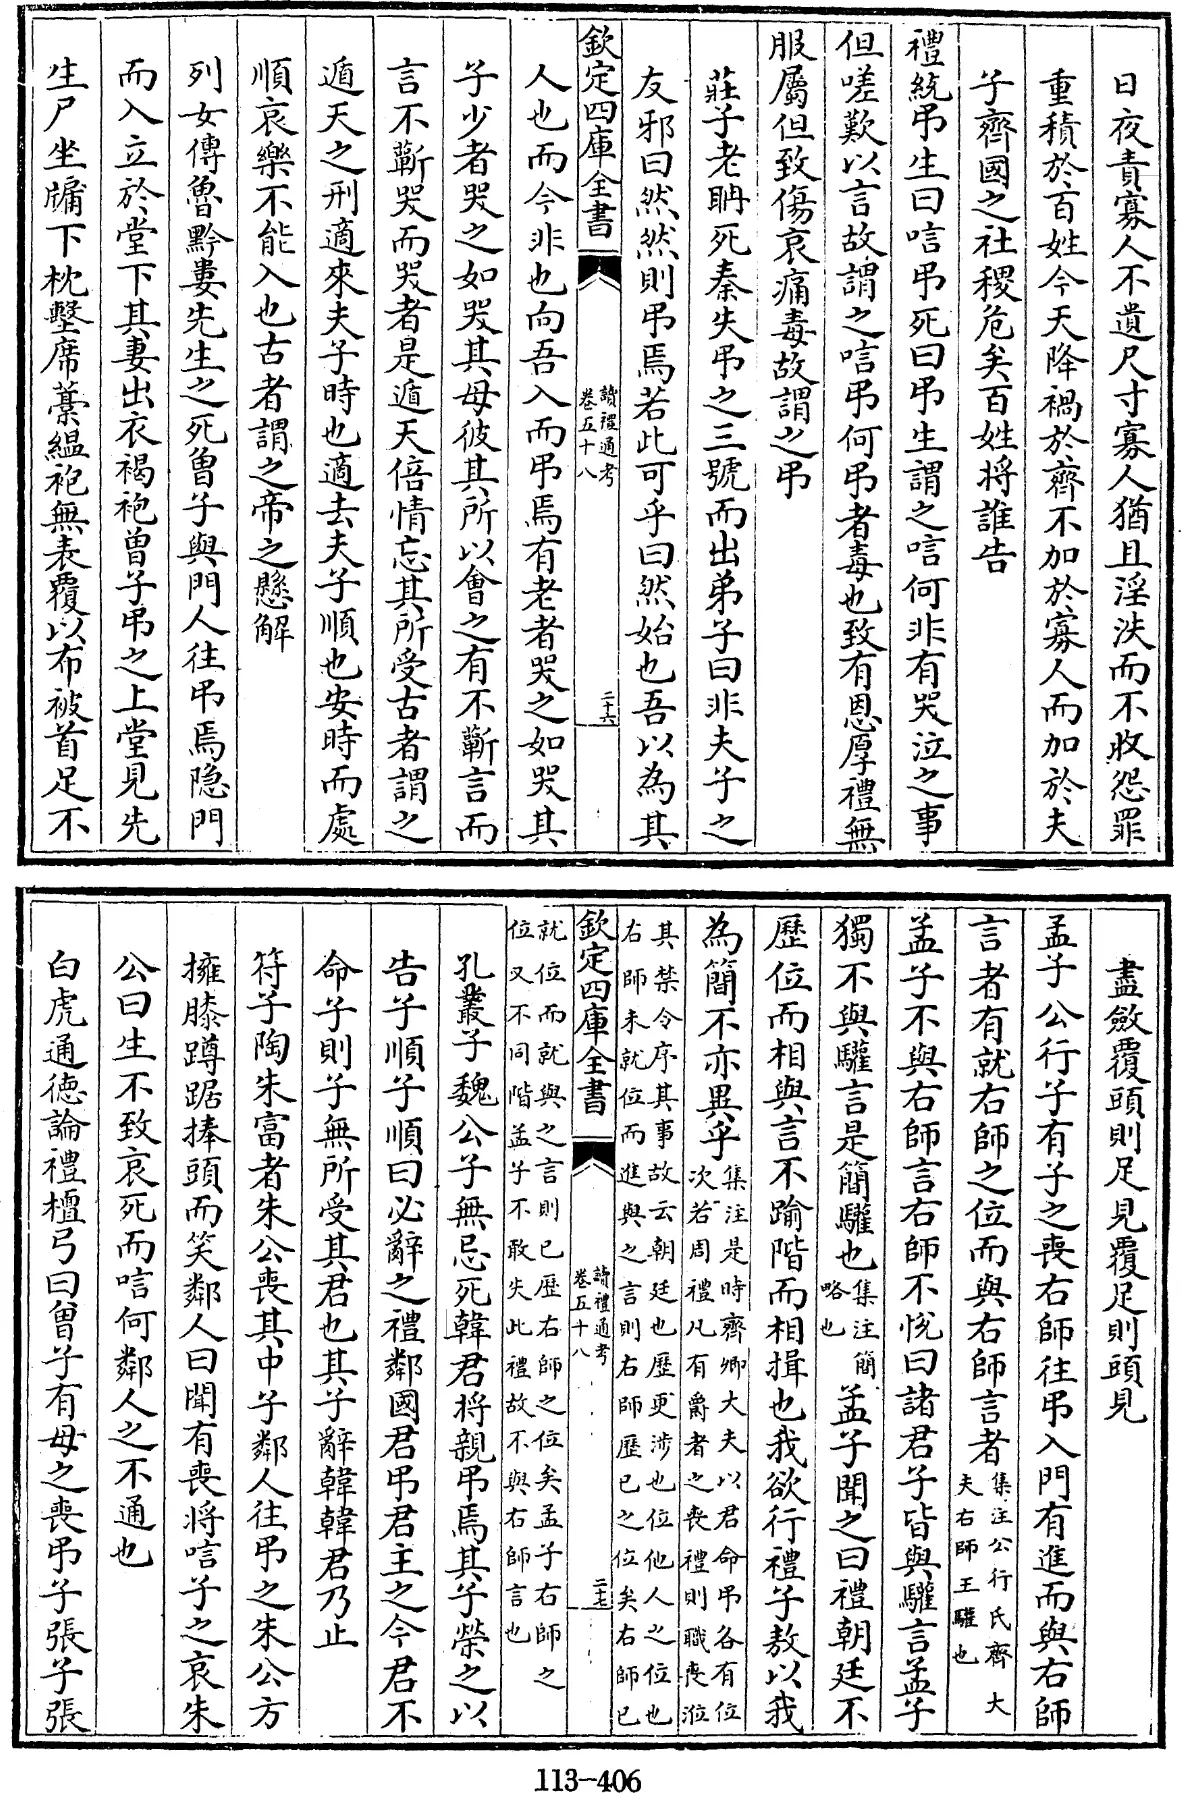 日夜責寡人不遺尺寸寡人猶且淫泆而不收怨罪
重積於百姓今天降禍於齊不加於寡人而加於夫
子齊國之社稷危矣百姓將誰告
禮統弔生曰唁弔死曰弔生謂之唁何非有哭泣之事
但嗟歎以言故謂之唁弔何弔者毒也致有恩厚禮無
服屬但致傷哀痛毒故謂之弔
莊子老聃死秦失弔之三號而出弟子曰非夫子之
友邪曰然然則弔焉若此可乎曰然始也吾以為其
欽定四庫全書
讀禮通考
卷五十八
二十六
人也而今非也向吾入而弔焉有老者哭之如哭其
子少者哭之如哭其母彼其所以會之有不蘄言而
言不蘄哭而哭者是遁天倍情忘其所受古者謂之
遁天之刑適來夫子時也適去夫子順也安時而處
順哀樂不能入也古者謂之帝之懸解
列女傳魯黔婁先生之死曾子與門人往弔焉隐門
而入立於堂下其妻出衣褐袍曾子弔之上堂見先
生尸坐牖下枕墼席藁緼袍無表覆以布被首足不
盡斂覆頭則足見覆足則頭見
孟子公行子有子之喪右師往弔入門有進而與右師
言者有就右師之位而與右師言者集注公行氏齊大
夫右師王驩也
孟子不與右師言右師不悅曰諸君子皆與驩言孟子
獨不與驩言是簡驩也集注簡
略也孟子聞之曰禮朝廷不
歷位而相與言不踰階而相揖也我欲行禮子敖以我
為簡不亦異乎集注是時齊卿大夫以君命弔各有位
次若周禮凡有爵者之喪禮則職喪涖
其禁令序其事故云朝廷也歷更涉也位他人之位也
右師未就位而進與之言則右師歷已之位矣右師已
欽定四庫全書
讀禮通考
卷五十八
二十七
就位而就與之言則已歷右師之位矣孟子右師之
位又不同階孟子不敢失此禮故不與右師言也
孔叢子魏公子無忌死韓君将親弔焉其子榮之以
告子順子順曰必辭之禮鄰國君弔君主之今君不
命子則子無所受其君也其子辭韓韓君乃止
符子陶朱富者朱公喪其中子鄰人往弔之朱公方
擁膝蹲踞捧頭而笑鄰人曰聞有喪将唁子之哀朱
公曰生不致哀死而唁何鄰人之不通也
白虎通德論禮檀弓曰曾子有母之喪弔子張子張
113-406